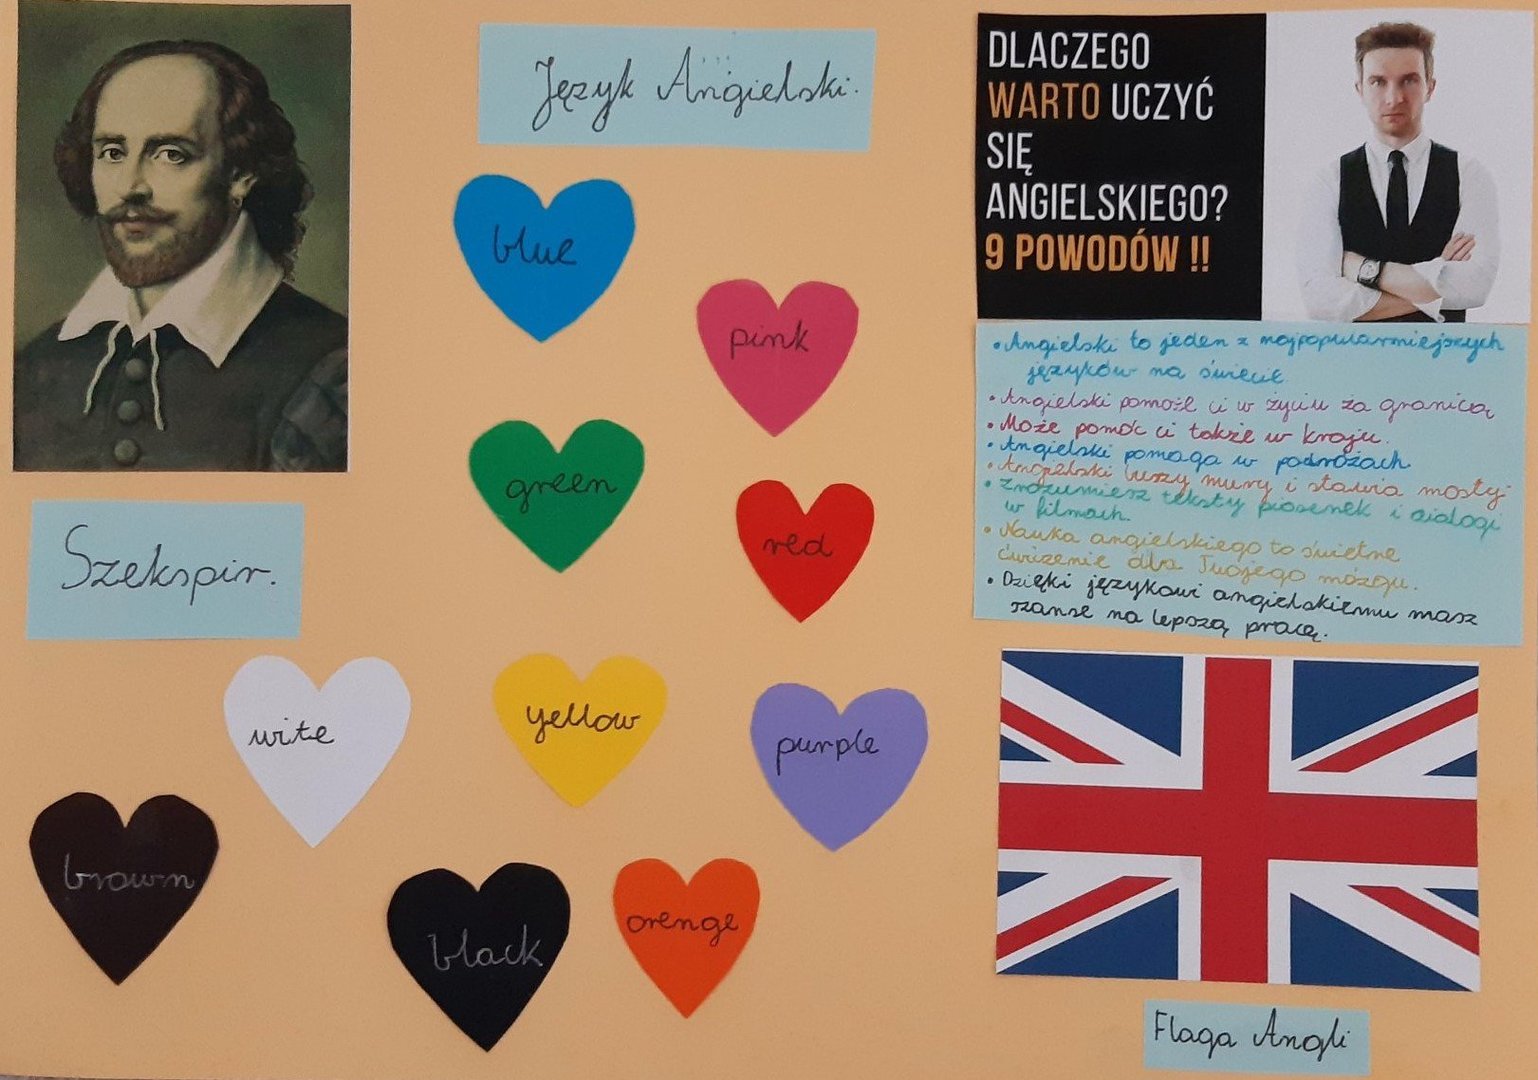 Język Angielski.
DLACZEGO
WARTO UCZYĆ
SIĘ
ANGIELSKIEGO?
9 POWODÓW !!
blue
pink
green
red
Szekspir.
wite
yellow
purple
brown
black
orenge
• Angielski to jeden z najpopularniejszych
języków na świecie
• Angielski pomoże ci w życiu za granicą
• Może pomóc ci także w kraju.
• Angielski pomaga w podróżach.
• Angielski burzy mury i stawia mosty
• Zrozumiesz teksty piosenek i dialogi
w filmach.
• Nauka angielskiego to świetne
ćwiczenie dla Twojego mózgu.
• Dzięki językowi angielskiemu masz
szanse na lepszą pracę.
Flaga Angli